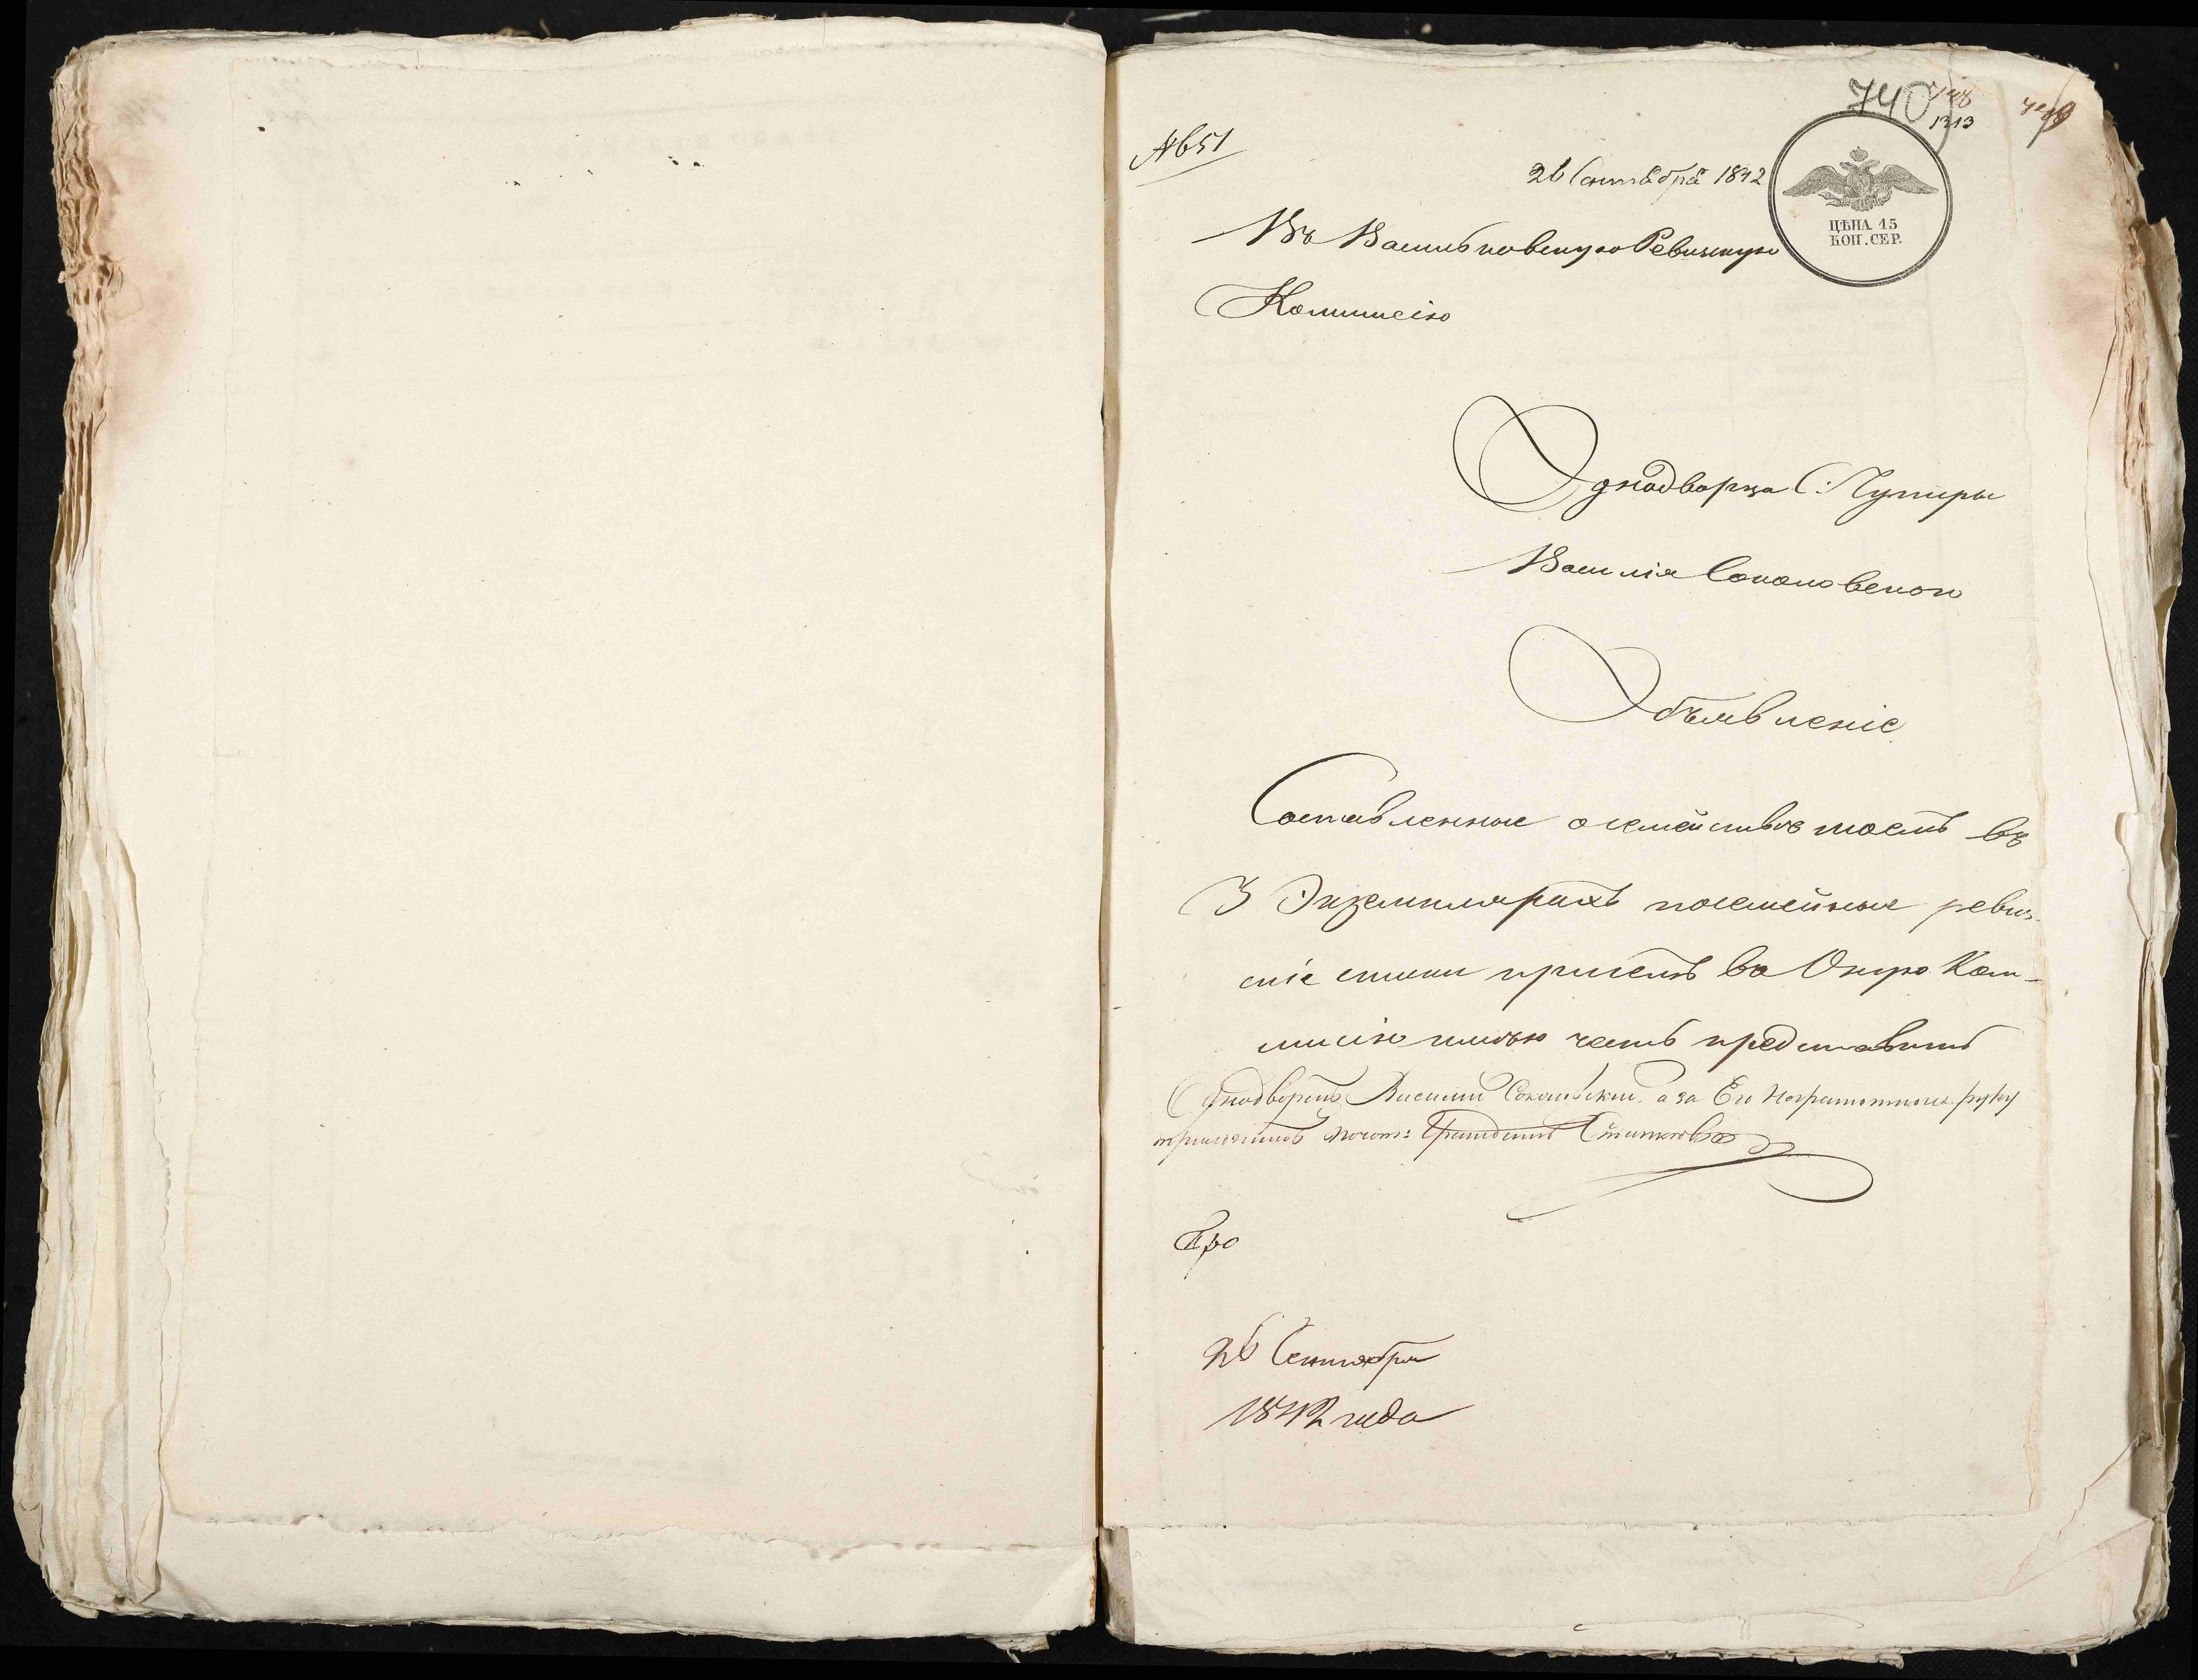 740
1313
№651
26 Сентября 1842
ЦѢНА 15
КОП. СЕР.
Въ Васильковскую Ревизскую
Коммисію
Однодворца С:
Василія Соколовского
Объявленіе
Составленные о семействѣ моемъ въ
3 Экземплярахъ посемейные ревиз-
скіе списки при семъ во Оную Ком-
мисію имѣю честь представить
Однодворецъ Василий Соколовский, а за Его неграмотного руку
приложилъ почет: Гражданинъ
26 Сентября
1842 года